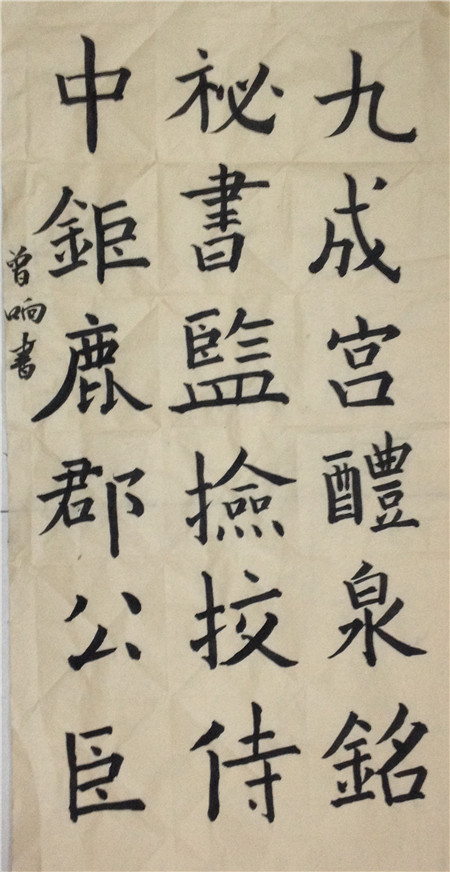 九成宫醴泉銘
祕書監撿挍侍
中鉅鹿郡公臣
曾响書